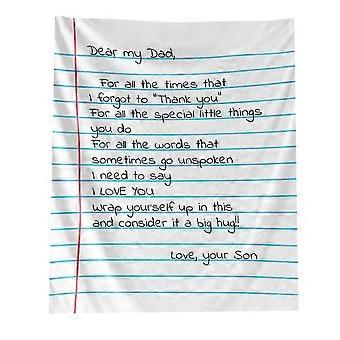 Dear my Dad,
For all the times that
I forgot to "Thank you"
For all the special little things
you do
For all the words that
sometimes go unspoken
I need to say
I LOVE YOU
wrap yourself up in this
and consider it a big hug!!
Love, your Son